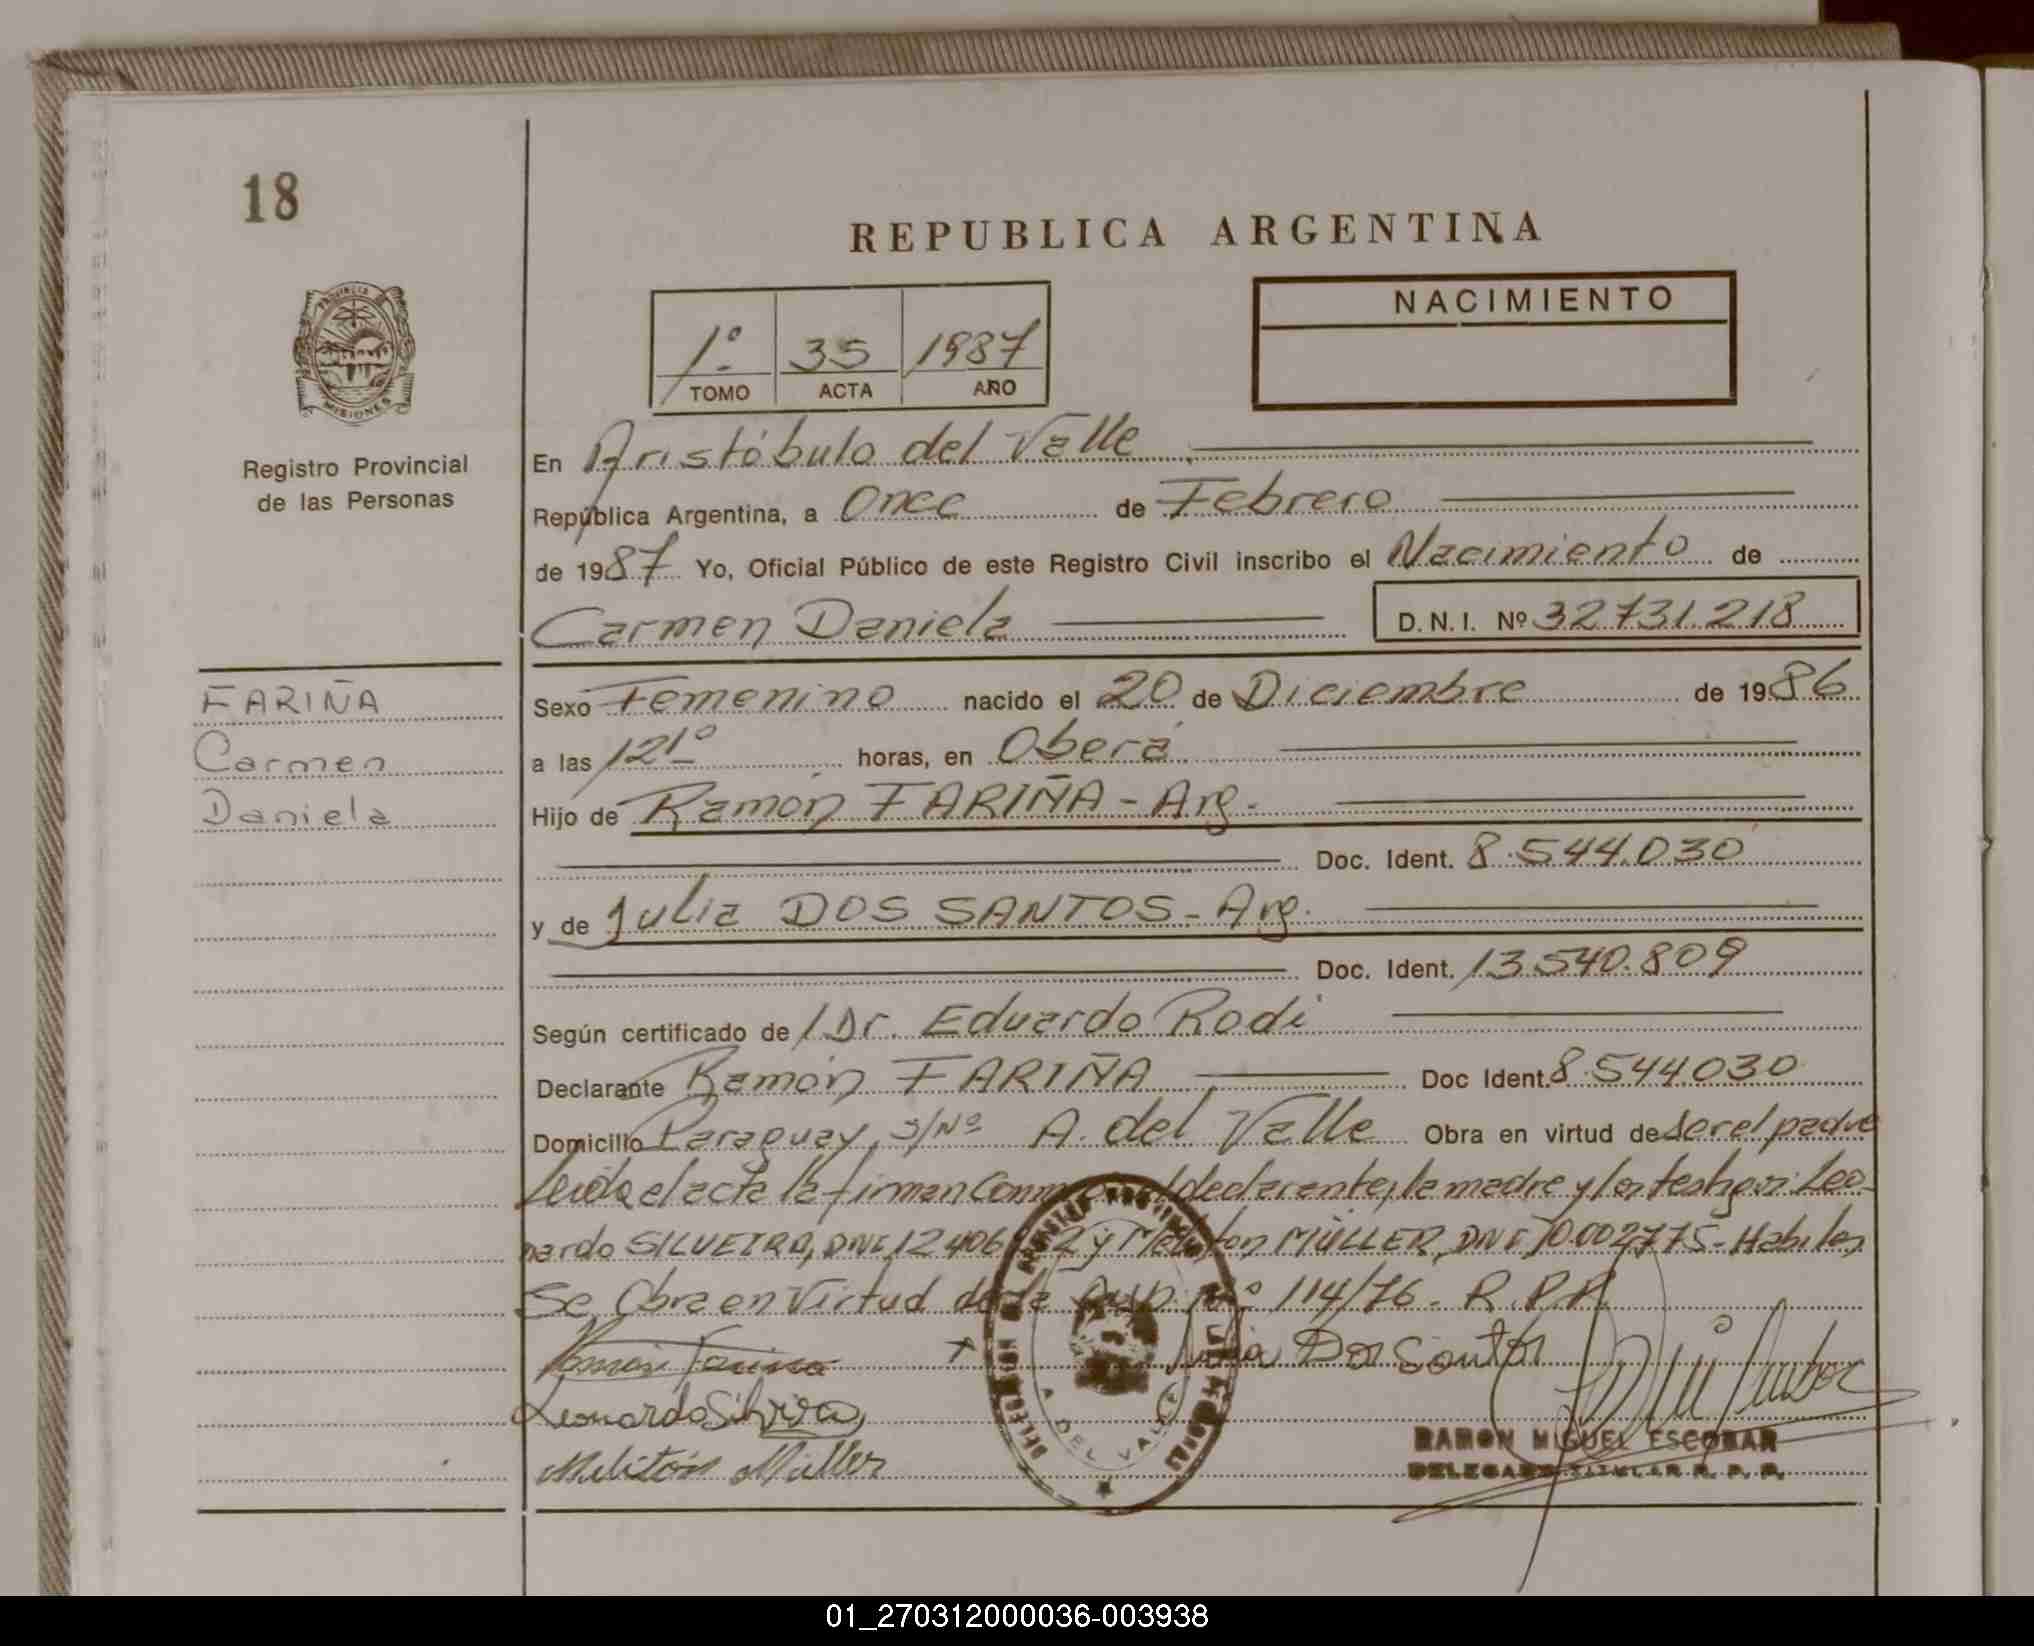 18
REPUBLICA ARGENTINA
PROVINCIA DE
MISIONES
Registro Provincial
de las Personas
1º 35 1987
TOMO ACTA AÑO
NACIMIENTO
En Aristóbulo del Valle
República Argentina, a Once de Febrero
de 1987 Yo, Oficial Público de este Registro Civil inscribo el Nacimiento de
Carmen Daniela D.N.I. Nº 32731.218
FARIÑA
Carmen
Daniela
Sexo Femenino nacido el 20 de Diciembre de 1986
a las 12 horas, en Oberá
Hijo de Ramón FARIÑA - Arg.
Doc. Ident. 8.544.030
y de Julia DOS SANTOS - Arg.
Doc. Ident. 13.540.809
Según certificado de Dr. Eduardo Rodi
Declarante Ramón FARIÑA Doc Ident. 8.544030
Domicilio Paraguay s/Nº A. del Valle Obra en virtud de ser el padre
Leida el acta la firman Conmigo el declarante, la madre y los testigos: Leo-
nardo SILVEIRA, DNI, y Melitón MÜLLER, DNI 10.002775 - Habiles
Se Obra en Virtud de la Nº 114/76. R.P.P.
Ramón Fariña Julia Dos Santos
Leonardo Silveira
Melitón Müller
A. DEL VALLE
RAMON MIGUEL ESCOBAR
DELEGADO TITULAR R. P. P.
01_270312000036-003938